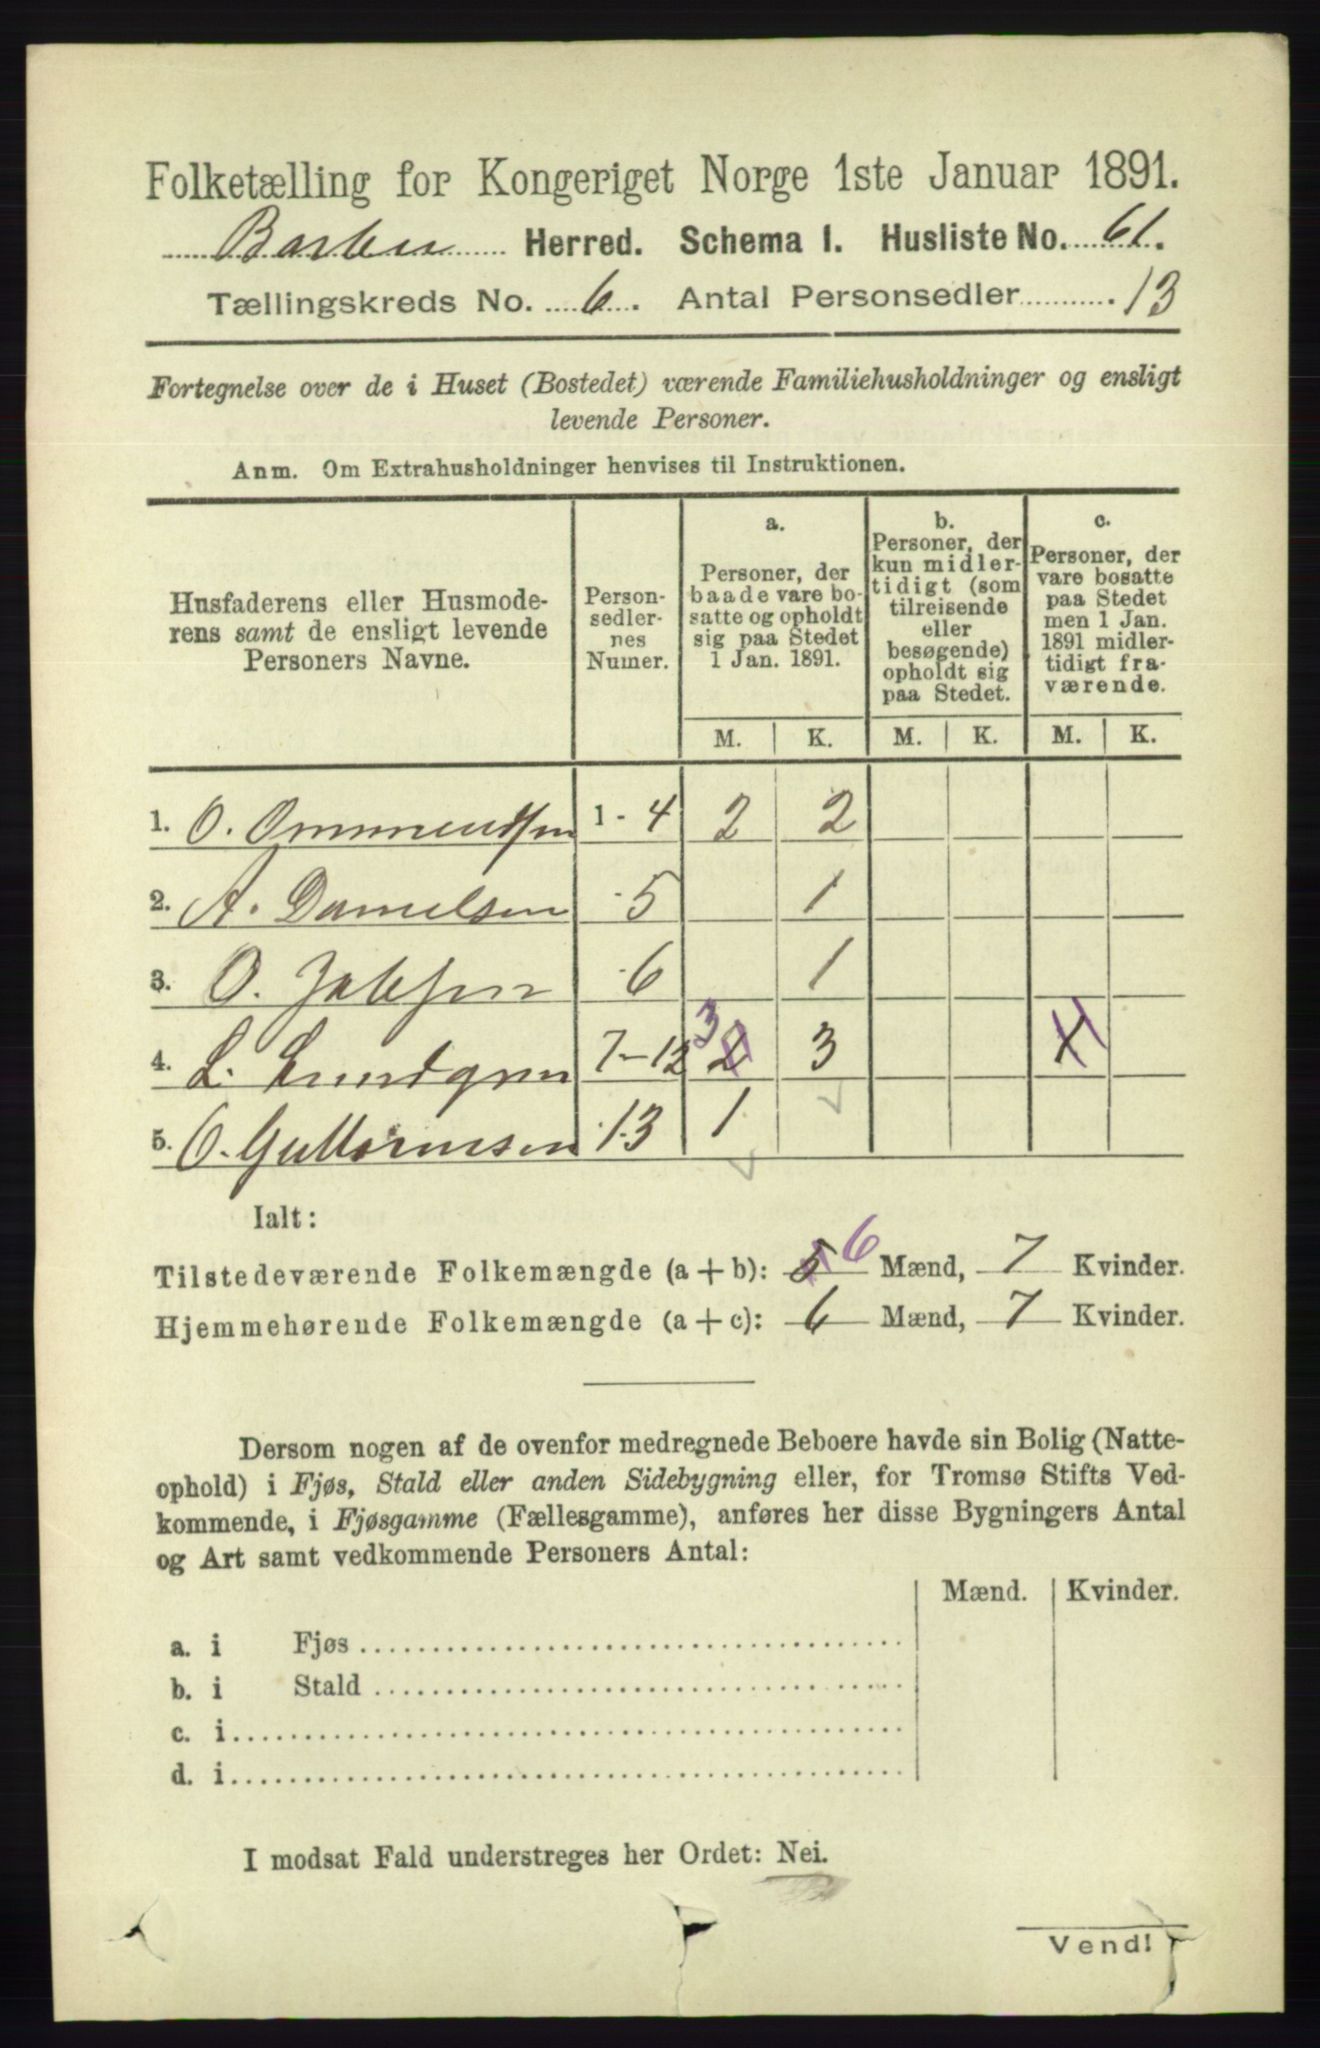 Folketælling for Kongeriget Norge 1ste Januar 1891.
Barbu Herred. Schema I. Husliste No. 61.
Tællingskreds No. 6. Antal Personsedler 13
Fortegnelse over de i Huset (Bostedet) værende Familiehusholdninger og ensligt
levende Personer.
Anm. Om Extrahusholdninger henvises til Instruktionen.
Husfaderens eller Husmode-
rens samt de ensligt levende
Personers Navne.
Person-
sedler-
nes
Numer.
a.
Personer, der
baade vare bo-
satte og opholdt
sig paa Stedet
1 Jan. 1891.
b.
Personer, der
kun midler-
tidigt (som
tilreisende
eller
besøgende)
opholdt sig
paa Stedet.
c.
Personer, der
vare bosatte
paa Stedet
men 1 Jan.
1891 midler-
tidigt fra-
værende.
M. K. M. K. M. K.
1. O. Ommundsen 1 - 4 2 2
2. A. Danielsen 5 1
3. O. Jakobsen 6 1
4. L. Lundgren 7-12 2 3 3 1
5. O. Guttormsen 13 1
Ialt:
Tilstedeværende Folkemængde (a+b): 5 6 Mænd, 7 Kvinder.
Hjemmehørende Folkemængde (a+c): 6 Mænd, 7 Kvinder.
Dersom nogen af de ovenfor medregnede Beboere havde sin Bolig (Natte-
ophold) i Fjøs, Stald eller anden Sidebygning eller, for Tromsø Stifts Ved-
kommende, i Fjøsgamme (Fællesgamme), anføres her disse Bygningers Antal
og Art samt vedkommende Personers Antal:
Mænd. Kvinder.
a. i Fjøs
b. i Stald
c. i
d. i
I modsat Fald understreges her Ordet: Nei.
Vend!